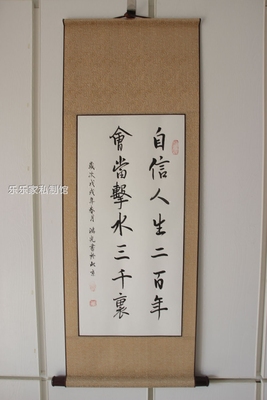 自信人生二百年
會當擊水三千裏
歲次戊戌年春月 海光書於北京
乐乐家私制馆